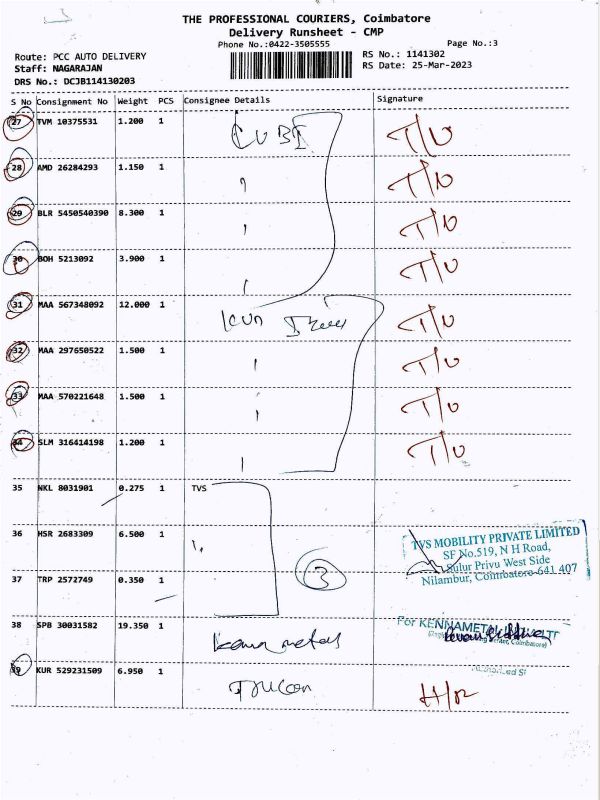 THE PROFESSIONAL COURIERS, Coimbatore
Delivery Runsheet - CMP
Phone No.:0422-3505555
Page No.:3
Route: PCC AUTO DELIVERY
RS No.: 1141302
Staff: NAGARAJAN
RS Date: 25-Mar-2023
DRS No.: DCJB114130203
S No Consignment No Weight PCS Consignee Details Signature
27 TVM 10375531 1.200 1 T/U
28 AMD 26284293 1.150 1 T/U
29 BLR 5450540390 8.300 1 T/U
30 BOH 5213092 3.900 1 T/U
31 MAA 567348092 12.000 1 T/U
32 MAA 297650522 1.500 1 T/U
33 MAA 570221648 1.500 1 T/U
34 SLM 316414198 1.200 1 T/U
35 NKL 8031901 0.275 1 TVS
36 HSR 2683309 6.500 1
TVS MOBILITY PRIVATE LIMITED
SF No.519, N H Road,
Sulur Privu West Side
Nilambur, Coimbatore-641 407
37 TRP 2572749 0.350 1 3
38 SPB 30031582 19.350 1
For KENNAMETAL
39 KUR 529231509 6.950 1